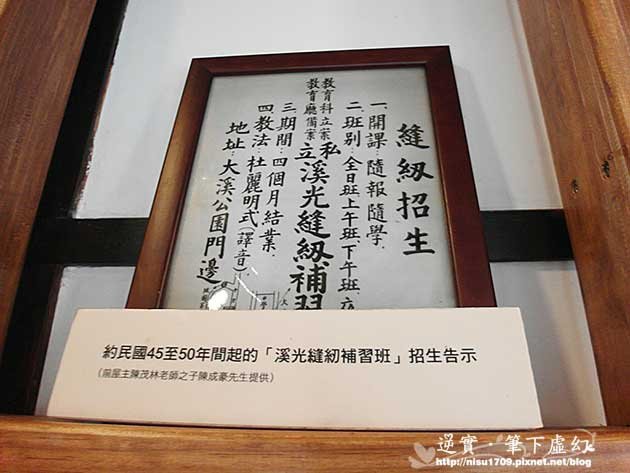 縫紉招生
一.開課:隨報隨學.
二.班别:全日班.上午班.下午班.夜
教育科立案
教育廳備案
私立溪光縫紉補習
三.期間:四個月結業.
四教法:杜麗明式(譯音)
地址:大溪公園門邊
約民國45至50年間起的「溪光縫紉補習班」招生告示
(前屋主陳茂林老師之子陳成豪先生提供)
逆實·筆下虛幻
http://nisu1709.pixnet.net/blog